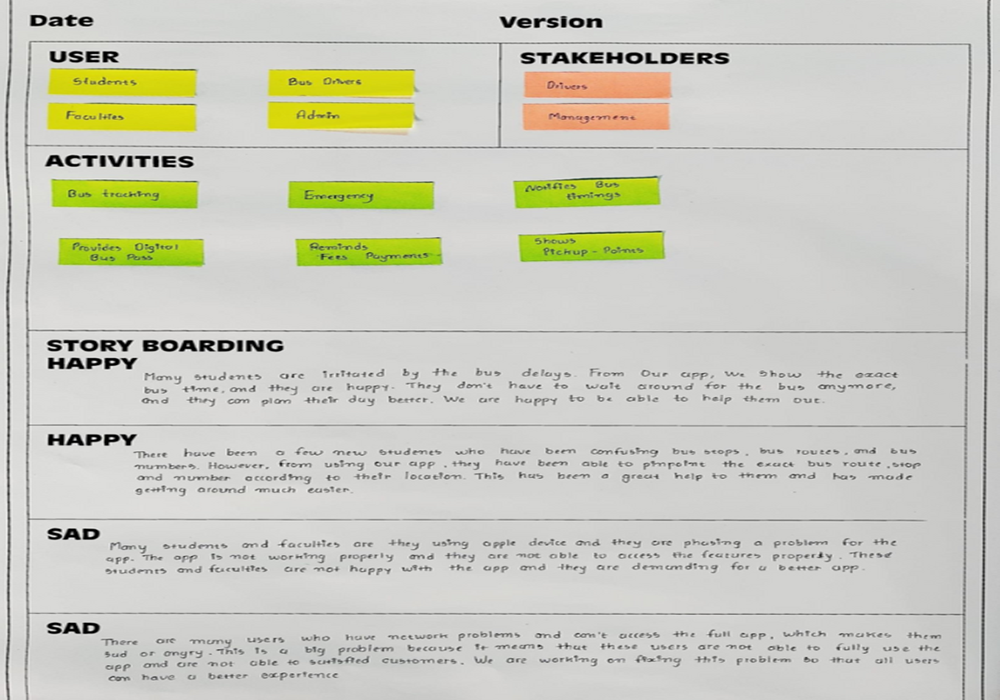 Date
Version
USER
STAKEHOLDERS
Students
Bus Drivers
Drivers
Faculties
Admin
Management
ACTIVITIES
Bus tracking
Emergency
Notifies Bus
timings
Provides Digital
Bus Pass
Reminds
Fees Payments
Shows
Pickup-Points
STORY BOARDING
HAPPY
Many students are irritated by the bus delays. From Our app, we show the exact
bus time, and they are happy. They don't have to wait around for the bus anymore,
and they can plan their day better. We are happy to be able to help them out.
HAPPY
There have been a few new students who have been confusing bus stops, bus routes, and bus
numbers. However, from using our app, they have been able to pinpoint the exact bus route, stop
and number according to their location. This has been a great help to them and has made
getting around much easier.
SAD
Many students and faculties are they using apple device and they are phasing a problem for the
app. The app is not working properly and they are not able to access the features property. These
students and faculties are not happy with the app and they are demanding for a better app.
SAD
There are many users who have network problems and can't access the full app, which makes them
sad or angry. This is a big problem because it means that these users are not able to fully use the
app and are not able to satisfied customers. We are working on fixing this problem so that all users
can have a better experience